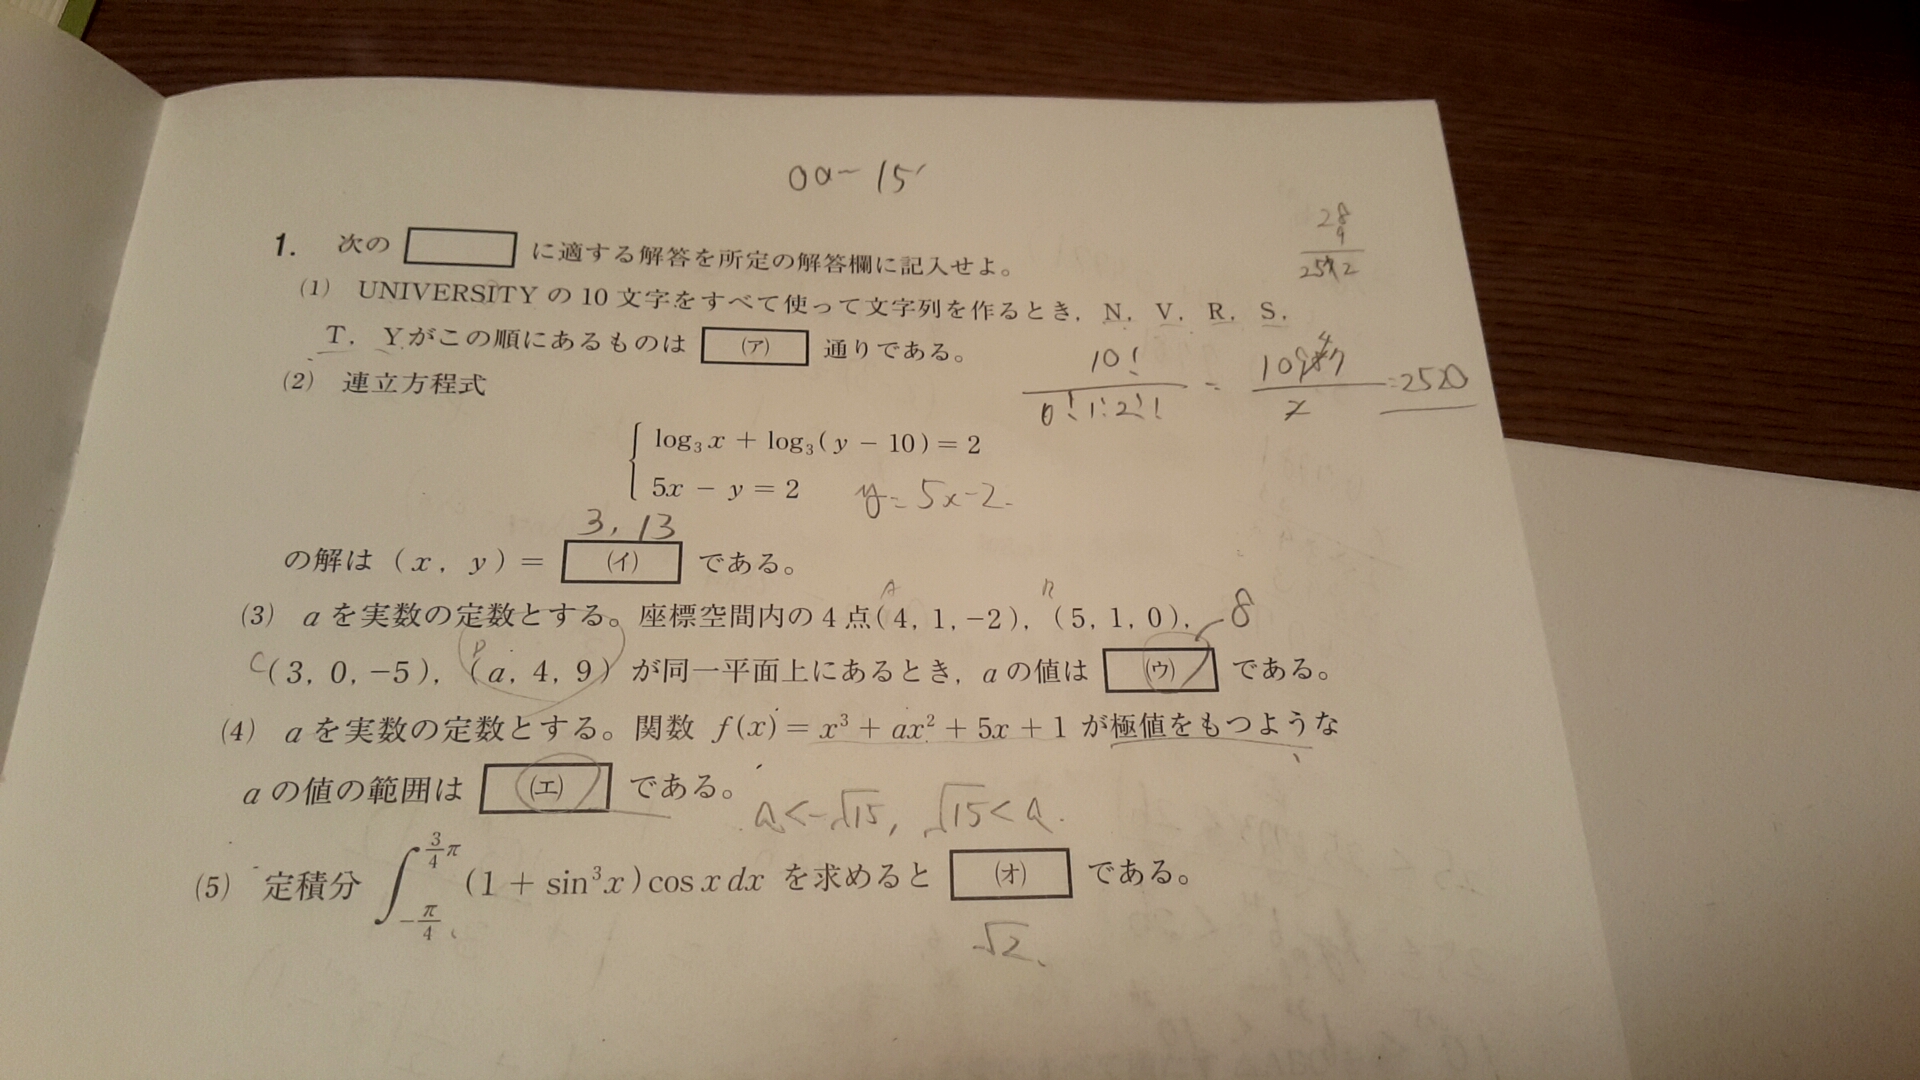 0a-15
28
9
252
1. 次の に適する解答を所定の解答欄に記入せよ。
(1) UNIVERSITY の 10 文字をすべて使って文字列を作るとき, N, V, R, S,
T, Y がこの順にあるものは (ア) 通りである。
10! / 6! 1! 2! 1 = 10 9 8 7 / 2 = 2520
(2) 連立方程式
log₃ x + log₃ (y − 10) = 2
5x − y = 2 y = 5x-2
3, 13
の解は (x, y) = (イ) である。
(3) a を実数の定数とする。座標空間内の 4 点 A (4, 1, −2), (5, 1, 0), 8
C (3, 0, −5), (a, 4, 9) が同一平面上にあるとき, a の値は (ウ) である。
(4) a を実数の定数とする。関数 f(x) = x³ + ax² + 5x + 1 が極値をもつような
a の値の範囲は (エ) である。
a < -√15, √15 < a
(5) 定積分 ∫_{−π/4}^{3/4 π} (1 + sin³x) cos x dx を求めると (オ) である。
√2